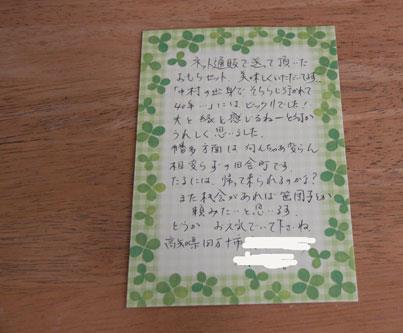 ネット通販で送って頂いた
おもちセット 美味しくいただいてます
「中村の出身で そちらに行かれて
40年…」には ビックリでした!
犬と縁を感じるねーと
うれしく思いました。
幡多方面は 何んちゃあ変らん
相変らずの田舎町です。
たまには、帰って来られるのかな?
また機会があれば 笹団子とか
頼みたいと思います。
どうか お元気でいて下さいね
高知県四万十市